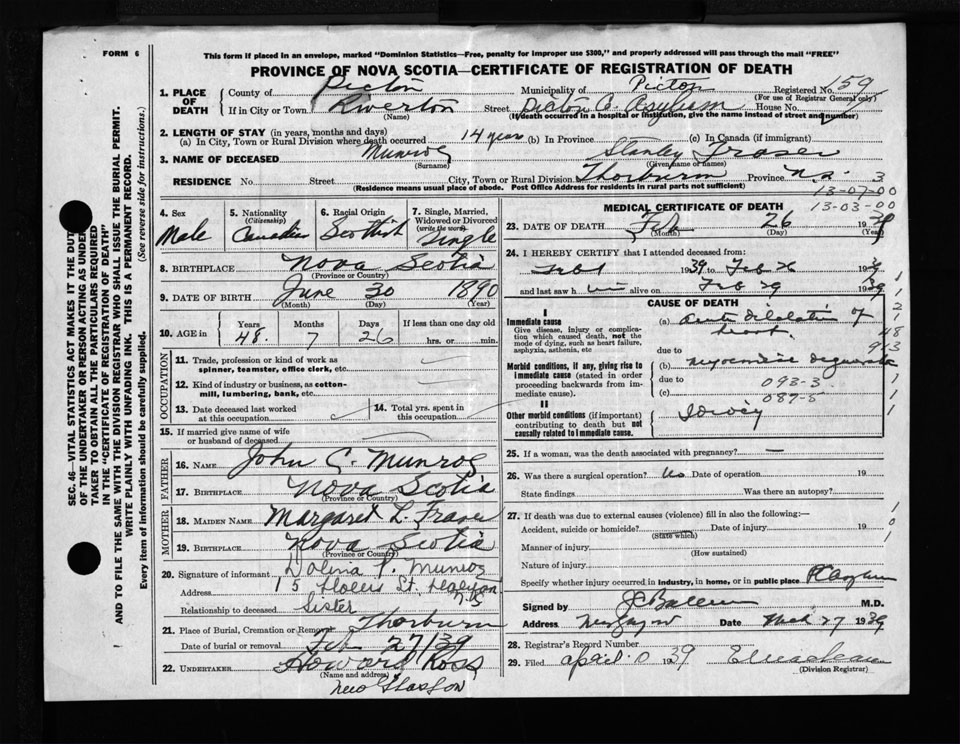 FORM 6
This form if placed in an envelope, marked "Dominion Statistics—Free, penalty for improper use $300," and properly addressed will pass through the mail "FREE"
PROVINCE OF NOVA SCOTIA—CERTIFICATE OF REGISTRATION OF DEATH
SEC. 46—VITAL STATISTICS ACT MAKES IT THE DUTY
OF THE UNDERTAKER OR PERSON ACTING AS UNDER-
TAKER TO OBTAIN ALL THE PARTICULARS REQUIRED
IN THE "CERTIFICATE OF REGISTRATION OF DEATH"
AND TO FILE THE SAME WITH THE DIVISION REGISTRAR WHO SHALL ISSUE THE BURIAL PERMIT.
WRITE PLAINLY WITH UNFADING INK. THIS IS A PERMANENT RECORD.
Every item of information should be carefully supplied. (See reverse side for Instructions.)
1. PLACE OF DEATH
County of Pictou Municipality of Pictou Registered No. 159
(For use of Registrar General only)
If in City or Town Riverton Street Pictou C. Asylum House No.
(Name) (If death occurred in a hospital or institution, give the name instead of street and number)
2. LENGTH OF STAY (in years, months and days)
(a) In City, Town or Rural Division where death occurred 14 years (b) In Province (c) In Canada (if immigrant)
3. NAME OF DECEASED Munroe Stanley Fraser
(Surname) (Given name or names)
RESIDENCE No. Street City, Town or Rural Division Thorburn Province N.S. 3
(Residence means usual place of abode. Post Office Address for residents in rural parts not sufficient)
13-07-00
13-03-00
4. Sex Male
5. Nationality (Citizenship) Canadian
6. Racial Origin Scottish
7. Single, Married, Widowed or Divorced (write the word) Single
8. BIRTHPLACE Nova Scotia
(Province or Country)
9. DATE OF BIRTH June 30 1890
(Month) (Day) (Year)
10. AGE in Years Months Days If less than one day old
48 7 26 hrs. or min.
OCCUPATION
11. Trade, profession or kind of work as spinner, teamster, office clerk, etc.
12. Kind of industry or business, as cotton-mill, lumbering, bank, etc.
13. Date deceased last worked at this occupation
14. Total yrs. spent in this occupation
15. If married give name of wife or husband of deceased
FATHER
16. NAME John C. Munroe
17. BIRTHPLACE Nova Scotia
(Province or Country)
MOTHER
18. MAIDEN NAME Margaret L. Fraser
19. BIRTHPLACE Nova Scotia
(Province or Country)
20. Signature of informant P. Munroe
Address St.
Relationship to deceased Sister
21. Place of Burial, Cremation or Removal Thorburn
Date of burial or removal Feb 27/39
22. UNDERTAKER Howard Ross
(Name and address)
New Glasgow
MEDICAL CERTIFICATE OF DEATH
23. DATE OF DEATH Feb 26 1939
(Month) (Day) (Year)
24. I HEREBY CERTIFY that I attended deceased from:
Feb 1 1939 to Feb 26 1939
and last saw him alive on Feb 1939
CAUSE OF DEATH
I
Immediate cause
Give disease, injury or complication which caused death, not the mode of dying, such as heart failure, asphyxia, asthenia, etc
(a) Acute dilatation of heart
due to
Morbid conditions, if any, giving rise to immediate cause (stated in order proceeding backwards from immediate cause).
(b) myocardial degeneration
due to 093-3
(c) 087-5
II
Other morbid conditions (if important) contributing to death but not causally related to immediate cause.
25. If a woman, was the death associated with pregnancy? —
26. Was there a surgical operation? No Date of operation 19
State findings Was there an autopsy?
27. If death was due to external causes (violence) fill in also the following:
Accident, suicide or homicide? Date of injury 19
(State which)
Manner of injury
(How sustained)
Nature of injury
Specify whether injury occurred in industry, in home, or in public place
Signed by M.D.
Address Date 27 1939
28. Registrar's Record Number
29. Filed April 1939
(Division Registrar)